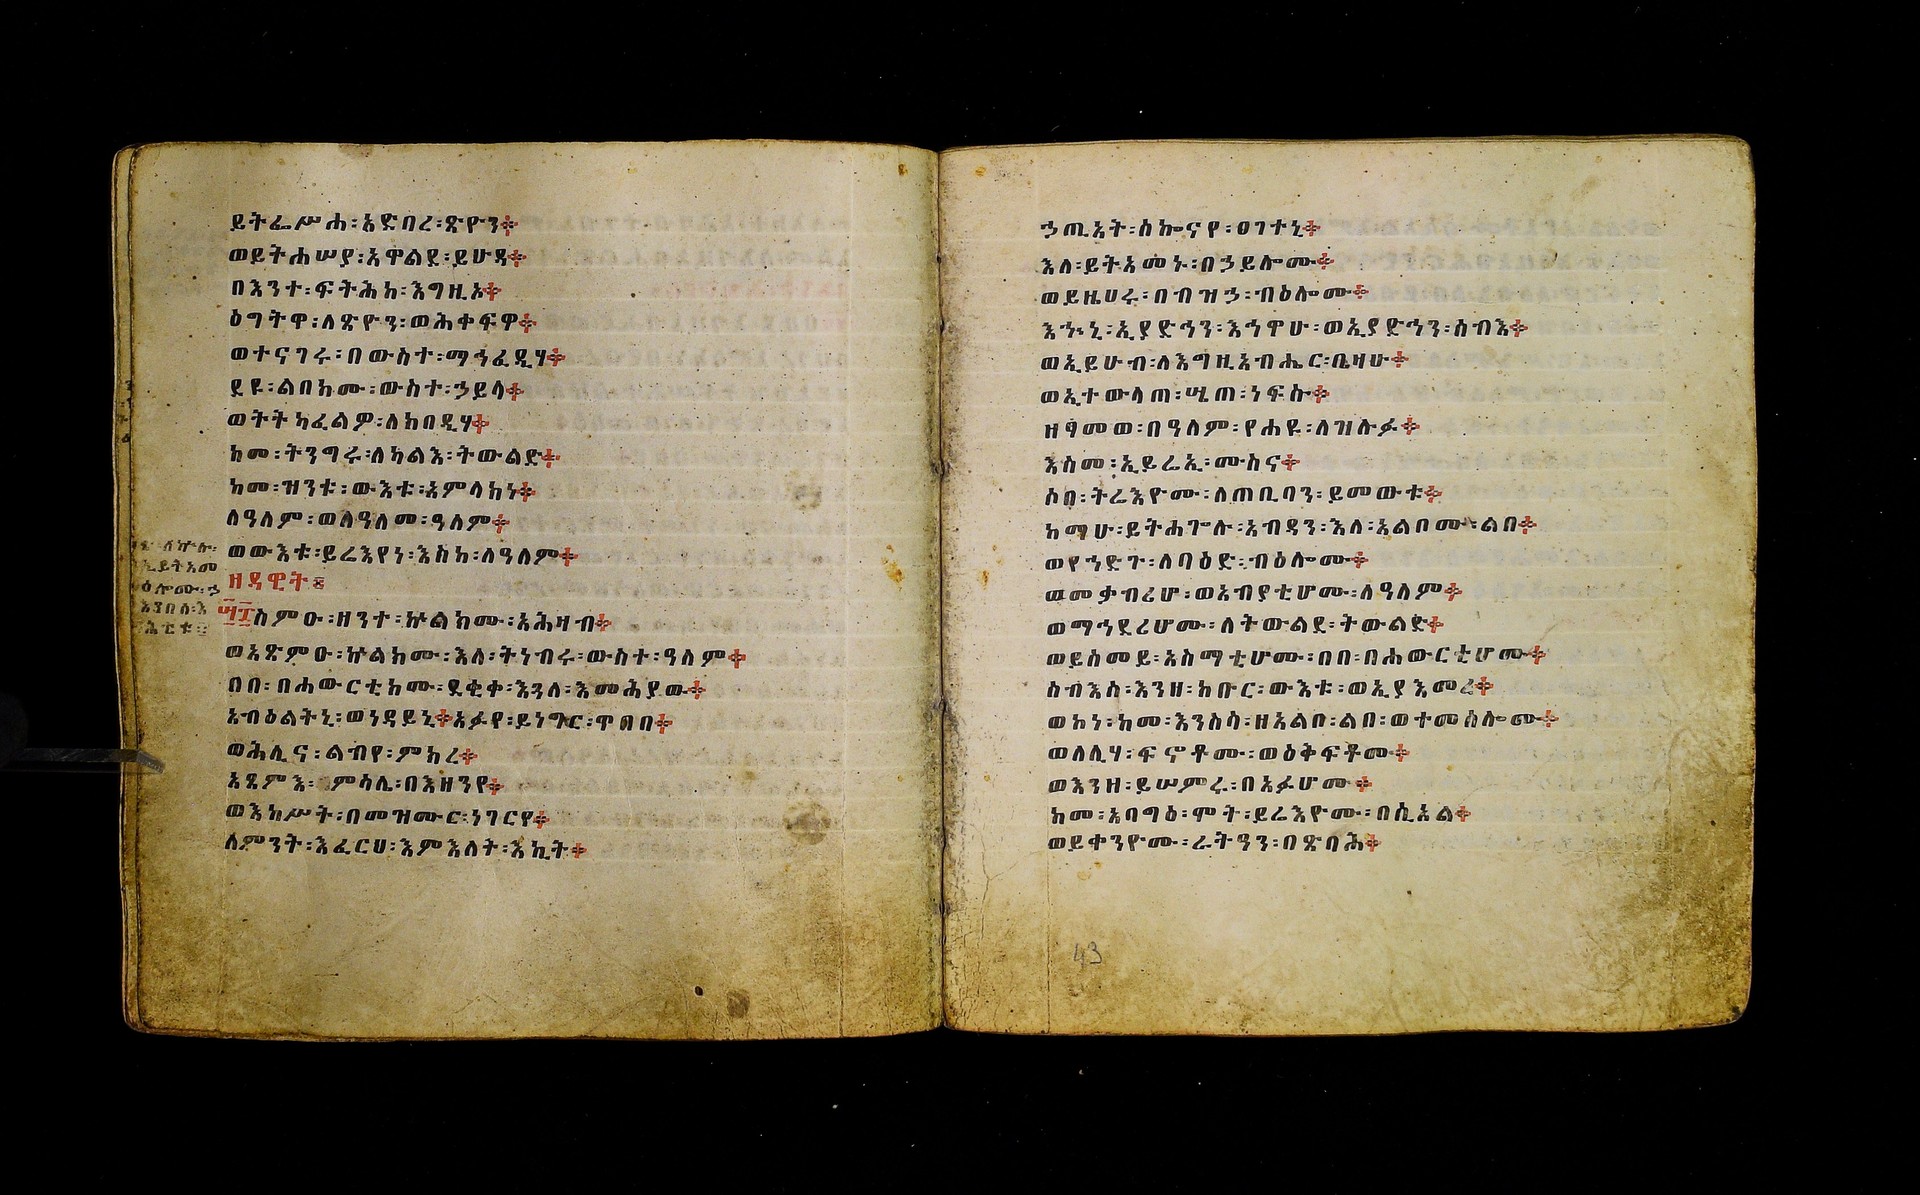 ይትፌሥሐ፡አድበረ፡ጽዮን፨
ወይትሐሠያ፡አዋልደ፡ይሁዳ፨
በእንተ፡ፍትሕከ፡እግዚአ፨
ዕግትዋ፡ለጽዮን፡ወሕቀፍዋ፨
ወተናገሩ፡በውስተ፡ማኅፈዲሃ፨
ደዩ፡ልበክሙ፡ውስተ፡ኃይላ፨
ወትትካፈልዎ፡ለክበዲሃ፨
ከመ፡ትንግሩ፡ለካልእ፡ትውልድ፨
ከመ፡ዝንቱ፡ውእቱ፡አምላክነ፨
ለዓለም፡ወለዓለመ፡ዓለም፨
ወውእቱ፡ይሬእየነ፡እስከ፡ለዓለም፨
ዘዳዊት፨
፵፰ስምዑ፡ዘንተ፡ኵልክሙ፡አሕዛብ፨
ወአጽምዑ፡ኵልክሙ፡እለ፡ትነብሩ፡ውስተ፡ዓለም፨
በበ፡በሐውርቲክሙ፡ደቂቀ፡እጓለ፡እመሕያው፨
አብዕልትኒ፡ወነዳይኒ፨አፉየ፡ይነግር፡ጥበበ፨
ወሕሊና፡ልብየ፡ምክረ፨
አጼምእ፡ምሳሌ፡በእዘንየ፨
ወእከሥት፡በመዝሙር፡ነገርየ፨
ለምንት፡እፈርህ፡እምእለት፡እኪት፨
ኃጢአት፡ሰኰናየ፡ዐገተኒ፨
እለ፡ይትአመኑ፡በኃይሎሙ፨
ወይዜሀሩ፡በብዝኃ፡ብዕሎሙ፨
እኍኒ፡ኢያድኅን፡እኅዋሁ፡ወኢያድኅን፡ሰብእ፨
ወኢይሁብ፡ለእግዚአብሔር፡ቤዛሁ፨
ወኢተውላጠ፡ሤጠ፡ነፍሱ፨
ዘፃመወ፡በዓለም፡የሐዩ፡ለዝሉፉ፨
እስመ፡ኢይሬኢ፡ሙስና፨
ሶበ፡ትሬእዮሙ፡ለጠቢባን፡ይመውቱ፨
ከማሁ፡ይትሐጐሉ፡አብዳን፡እለ፡አልቦሙ፡ልበ፨
ወየኀድጉ፡ለባዕድ፡ብዕሎሙ፨
ወመቃብሪሆ፡ወአብያቲሆሙ፡ለዓለም፨
ወማኅደሪሆሙ፡ለትውልደ፡ትውልድ፨
ወይሰመይ፡አስማቲሆሙ፡በበ፡በሐውርቲሆሙ፨
ሰብእሰ፡እንዘ፡ክቡር፡ውእቱ፡ወኢያእመረ፨
ወኮነ፡ከመ፡እንስሳ፡ዘአልቦ፡ልበ፡ወተመሰሎሙ፨
ወለሊሃ፡ፍኖቶሙ፡ወዕቅፍቶሙ፨
ወእንዘ፡ይሠምሩ፡በአፉሆሙ፨
ከመ፡አባግዕ፡ሞት፡ይሬእዮሙ፡በሲኦል፨
ወይቀንዮሙ፡ራትዓን፡በጽባሕ፨
43